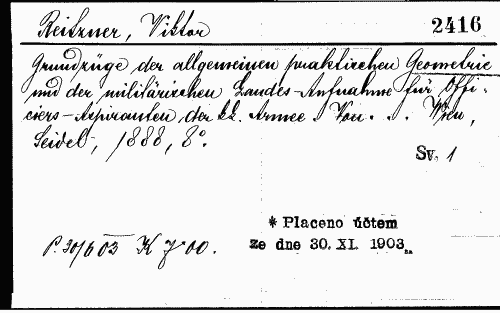 Reitzner, Viktor 2416
Grundzüge der allgemeinen praktischen Geometrie
und der militärischen Landes-Aufnahme für Offi-
ciers-Aspiranten der kk. Armee. Von . . . Wien,
Seidel, 1888, 8°.
Sv. 1
* Placeno účtem
P. 30/6 03 K 7·00. ze dne 30. XI. 1903